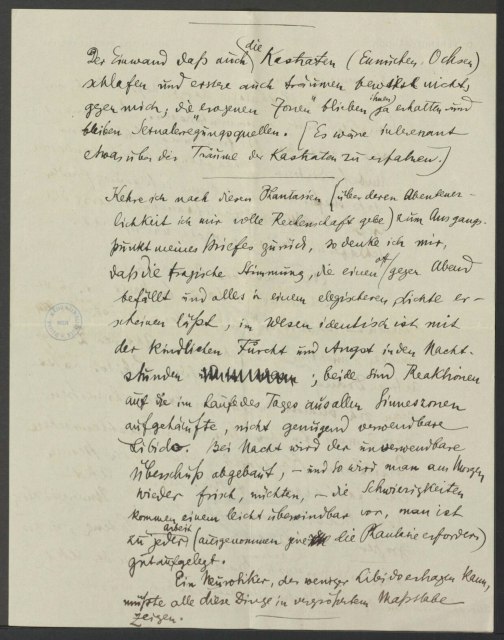 Der Einwand daß auch die Kastraten (Eunuchen, Ochsen)
schlafen und erstere auch träumen beweist nichts
gegen mich; die erogenen Zonen" blieben ihnen ja erhalten und
bleiben Sexualerregungsquellen. (Es wäre interessant
etwas über die Träume der Kastraten zu erfahren.)
Kehre ich nach diesen Phantasien (über deren Abenteuer-
lichkeit ich mir volle Rechenschaft gebe) zum Ausgangs-
punkt meines Briefes zurück, so denke ich mir,
daß die tragische Stimmung, die einen oft gegen Abend
befällt und alles in einem elegischeren Lichte er-
scheinen läßt, im Wesen identisch ist mit
der kindlichen Furcht und Angst in den Nacht-
stunden ; beide sind Reaktionen
auf die im Laufe des Tages aus allen Sinneszonen
aufgehäufte, nicht genügend verwendbare
Libido. Bei Nacht wird der unverwendbare
Überschuß abgebaut, – und so wird man am Morgen
wieder frisch, nüchtern, – die Schwierigkeiten
kommen einem leicht überwindbar vor, man ist
zu jeder arbeit (ausgenommen die Phantasie erfordern)
gut aufgelegt.
Ein Neurotiker, der weniger Libido ertragen kann,
müßte alle diese Dinge in vergrößertem Maßstabe
zeigen.